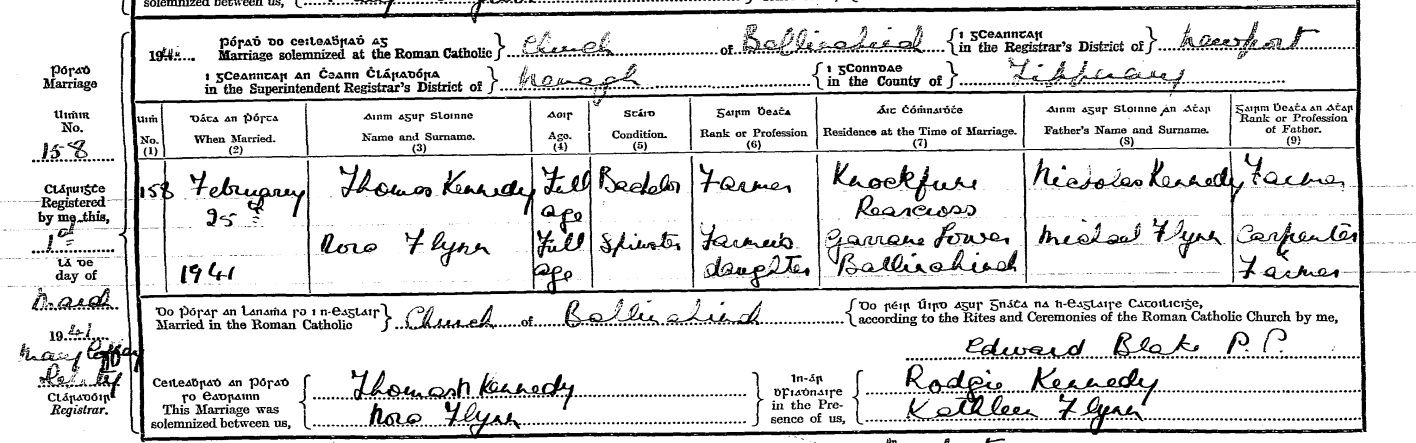 solemnized between us,
1941 Pórad do ceileabhrad ag Marriage solemnized at the Roman Catholic Church of Ballinahinch i gceanntar in the Registrar's District of Newport
i gceanntar an Cheann Chláradóra in the Superintendent Registrar's District of Nenagh i gConndae in the County of Tipperary
Pórad
Marriage
Uimhir
No.
158
Cláruighte
Registered
by me this,
1st
lá de
day of
March
1941
Mary Coffey
Cláradóir
Registrar.
Uimh Dáta an Pórta Ainm agus Sloinne Aois Stáid Gairm Beata Áit Comhnaidhte Ainm agus Sloinne an Athar Gairm Beata an Athar
No. When Married. Name and Surname. Age. Condition. Rank or Profession Residence at the Time of Marriage. Father's Name and Surname. Rank or Profession of Father.
(1) (2) (3) (4) (5) (6) (7) (8) (9)
158 February Thomas Kennedy Full Bachelor Farmer Knockfune Nicholas Kennedy Farmer
25th age Rearcross
Nora Flynn Full Spinster Farmer's Garrane Lower Michael Flynn Carpenter
1941 age daughter Ballinahinch Farmer
Do pórad an lanamha so i n-eaglais Married in the Roman Catholic Church of Ballinahinch Do réir Úird agus Gnáta na h-eaglaise Catoilicighe, according to the Rites and Ceremonies of the Roman Catholic Church by me,
Edward Blake P.P.
Ceileabhrad an pórad so eadrainn
This Marriage was solemnized between us,
Thomas N Kennedy
Nora Flynn
In-ár bhfiadhnaise
in the Presence of us,
Rodgie Kennedy
Kathleen Flynn